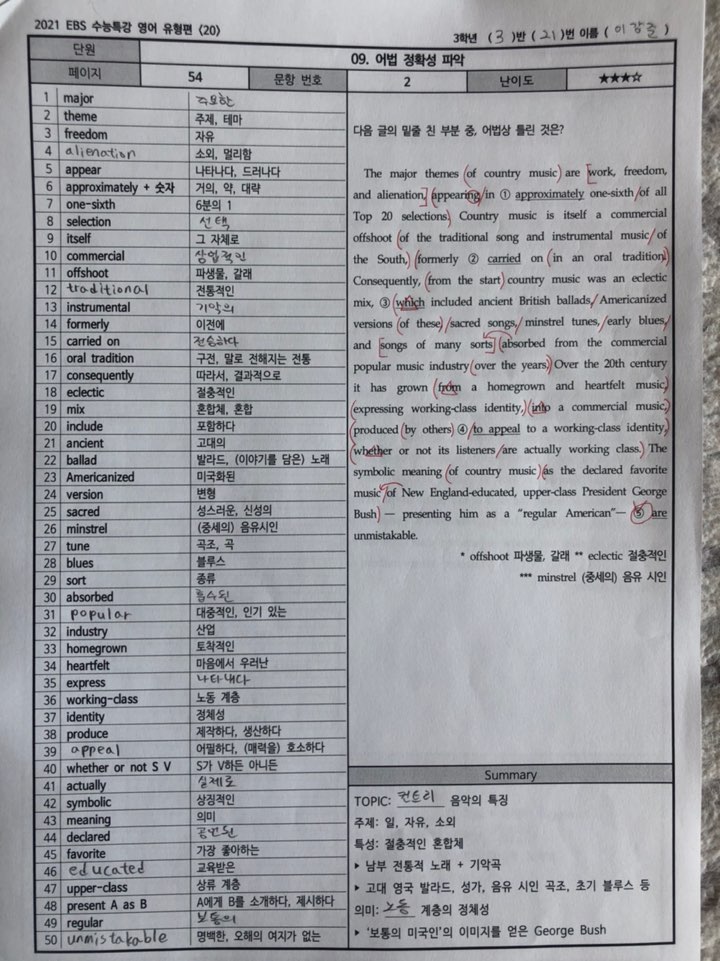 2021 EBS 수능특강 영어 유형편 <20>
3학년 ( 3 )반 ( 21 )번 이름 ( 이강준 )
단원 09. 어법 정확성 파악
페이지 54 문항 번호 2 난이도 ★★★☆
1 major 주요한
2 theme 주제, 테마
3 freedom 자유
4 alienation 소외, 멀리함
5 appear 나타나다, 드러나다
6 approximately + 숫자 거의, 약, 대략
7 one-sixth 6분의 1
8 selection 선택
9 itself 그 자체로
10 commercial 상업적인
11 offshoot 파생물, 갈래
12 traditional 전통적인
13 instrumental 기악의
14 formerly 이전에
15 carried on 전승하다
16 oral tradition 구전, 말로 전해지는 전통
17 consequently 따라서, 결과적으로
18 eclectic 절충적인
19 mix 혼합체, 혼합
20 include 포함하다
21 ancient 고대의
22 ballad 발라드, (이야기를 담은) 노래
23 Americanized 미국화된
24 version 변형
25 sacred 성스러운, 신성의
26 minstrel (중세의) 음유시인
27 tune 곡조, 곡
28 blues 블루스
29 sort 종류
30 absorbed 흡수된
31 popular 대중적인, 인기 있는
32 industry 산업
33 homegrown 토착적인
34 heartfelt 마음에서 우러난
35 express 나타내다
36 working-class 노동 계층
37 identity 정체성
38 produce 제작하다, 생산하다
39 appeal 어필하다, (매력을) 호소하다
40 whether or not S V S가 V하든 아니든
41 actually 실제로
42 symbolic 상징적인
43 meaning 의미
44 declared 공언된
45 favorite 가장 좋아하는
46 educated 교육받은
47 upper-class 상류 계층
48 present A as B A에게 B를 소개하다, 제시하다
49 regular 보통의
50 unmistakable 명백한, 오해의 여지가 없는
다음 글의 밑줄 친 부분 중, 어법상 틀린 것은?
The major themes of country music are work, freedom,
and alienation appearing in ① approximately one-sixth of all
Top 20 selections. Country music is itself a commercial
offshoot of the traditional song and instrumental music of
the South, formerly ② carried on in an oral tradition.
Consequently, from the start country music was an eclectic
mix, ③ which included ancient British ballads, Americanized
versions of these, sacred songs, minstrel tunes, early blues,
and songs of many sorts absorbed from the commercial
popular music industry over the years. Over the 20th century
it has grown from a homegrown and heartfelt music,
expressing working-class identity, into a commercial music,
produced by others ④ to appeal to a working-class identity,
whether or not its listeners are actually working class. The
symbolic meaning of country music as the declared favorite
music of New England-educated, upper-class President George
Bush — presenting him as a "regular American"— ⑤ are
unmistakable.
* offshoot 파생물, 갈래 ** eclectic 절충적인
*** minstrel (중세의) 음유 시인
Summary
TOPIC: 컨트리 음악의 특징
주제: 일, 자유, 소외
특성: 절충적인 혼합체
▸ 남부 전통적 노래 + 기악곡
▸ 고대 영국 발라드, 성가, 음유 시인 곡조, 초기 블루스 등
의미: 노동 계층의 정체성
▸ '보통의 미국인'의 이미지를 얻은 George Bush